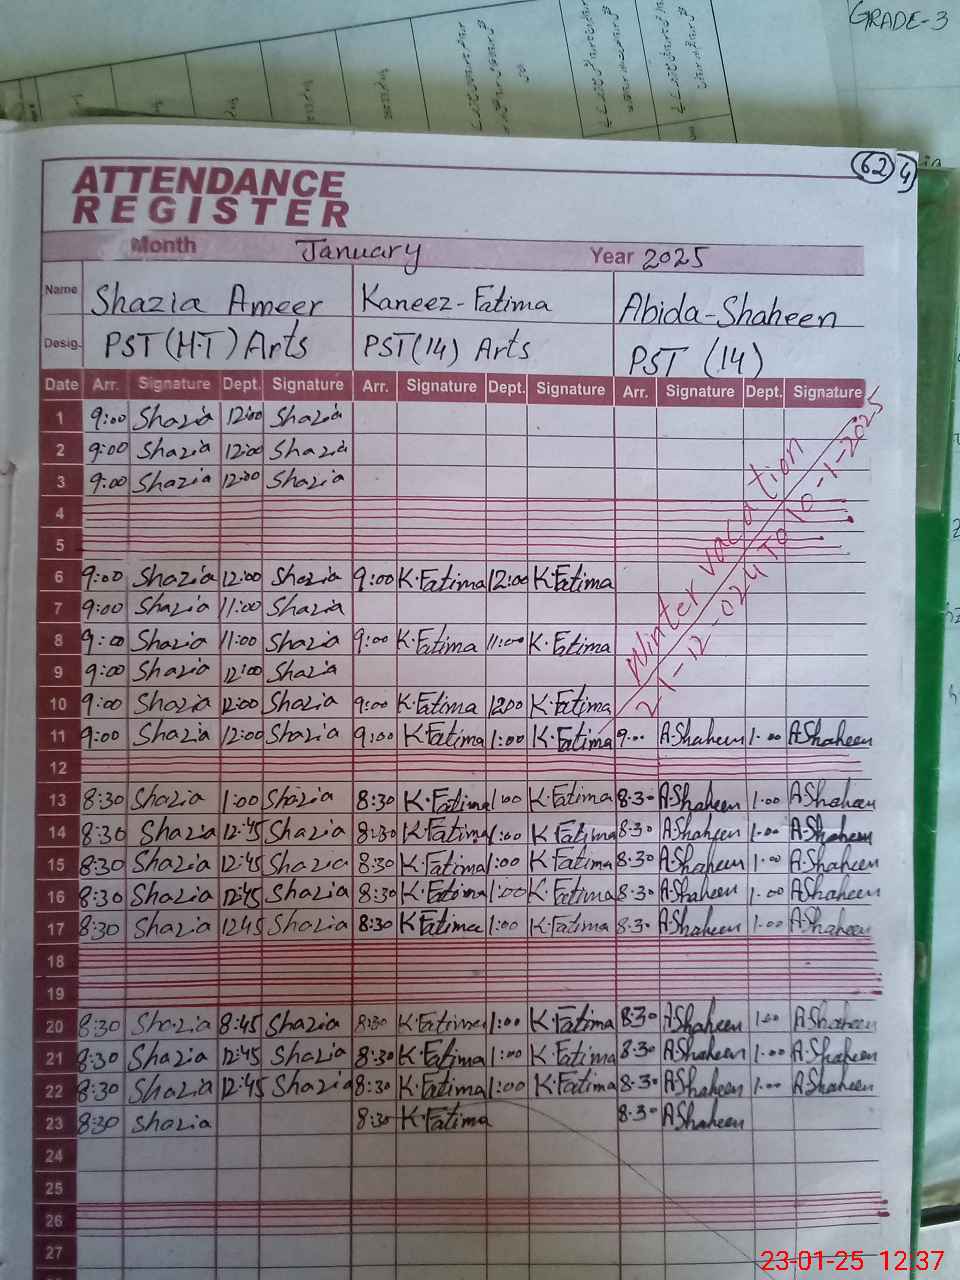 GRADE-3
62 4
ATTENDANCE
REGISTER
Month January Year 2025
Name Shazia Ameer Kaneez-Fatima Abida-Shaheen
Desig. PST(H.T) Arts PST(14) Arts PST (14)
Date Arr. Signature Dept. Signature Arr. Signature Dept. Signature Arr. Signature Dept. Signature
1 9:00 Shazia 12:00 Shazia
2 9:00 Shazia 12:00 Shazia
3 9:00 Shazia 12:00 Shazia
4
5
Winter vacation
21-12-024 To 10-1-2025
6 9:00 Shazia 12:00 Shazia 9:00 K.Fatima 12:00 K.Fatima
7 9:00 Shazia 11:00 Shazia
8 9:00 Shazia 11:00 Shazia 9:00 K.Fatima 11:00 K.Fatima
9 9:00 Shazia 12:00 Shazia
10 9:00 Shazia 12:00 Shazia 9:00 K.Fatima 12:00 K.Fatima
11 9:00 Shazia 12:00 Shazia 9:00 K.Fatima 1:00 K.Fatima 9.00 A.Shaheen 1.00 A.Shaheen
12
13 8:30 Shazia 1:00 Shazia 8:30 K.Fatima 1:00 K.Fatima 8.30 A.Shaheen 1.00 A.Shaheen
14 8:30 Shazia 12:45 Shazia 8:30 K.Fatima 1:00 K.Fatima 8.30 A.Shaheen 1.00 A.Shaheen
15 8:30 Shazia 12:45 Shazia 8:30 K.Fatima 1:00 K.Fatima 8.30 A.Shaheen 1.00 A.Shaheen
16 8:30 Shazia 12:45 Shazia 8:30 K.Fatima 1:00 K.Fatima 8.30 A.Shaheen 1.00 A.Shaheen
17 8:30 Shazia 12:45 Shazia 8:30 K.Fatima 1:00 K.Fatima 8.30 A.Shaheen 1.00 A.Shaheen
18
19
20 8:30 Shazia 8:45 Shazia 8:30 K.Fatima 1:00 K.Fatima 8.30 A.Shaheen 1.00 A.Shaheen
21 8:30 Shazia 12:45 Shazia 8:30 K.Fatima 1:00 K.Fatima 8.30 A.Shaheen 1.00 A.Shaheen
22 8:30 Shazia 12:45 Shazia 8:30 K.Fatima 1:00 K.Fatima 8.30 A.Shaheen 1.00 A.Shaheen
23 8:30 Shazia 8:30 K.Fatima 8.30 A.Shaheen
24
25
26
27
23-01-25 12:37